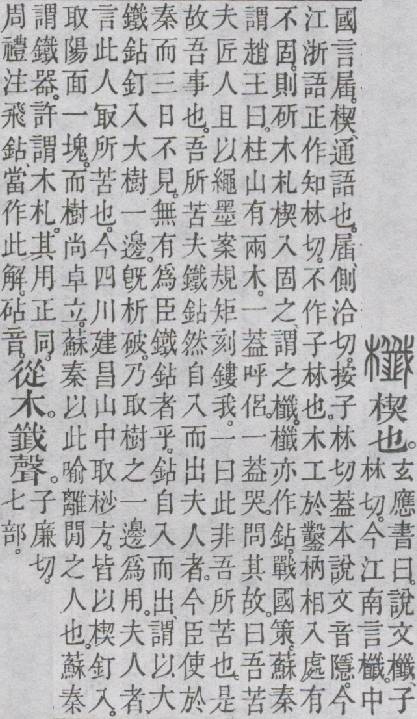 櫼楔也。
玄應書曰說文櫼、子
林切。今江南言櫼。中
國言㞚。楔、通語也。㞚側洽切。按子林切葢本說文音隱。今
江浙語正作知林切。不作子林也。木工於鑿枘相入處有
不固。則斫木札楔入固之。謂之櫼。櫼亦作鉆。戰國策。蘇秦
謂趙王曰。柱山有兩木。一葢呼侶。一葢哭。問其故。曰吾苦
夫匠人且以繩墨案規矩刻鏤我。一曰此非吾所苦也。是
故吾事也。吾所苦夫鐵鉆然自入而出夫人者。今臣使於
秦而三日不見。無有爲臣鐵鉆者乎。鉆自入而出。謂以大
鐵鉆釘入大樹一邊。旣析破。乃取樹之一邊爲用。夫人者
言此人㝡所苦也。今四川建昌山中取桫方。皆以楔釘入。
取陽面一塊。而樹尚卓立。蘇秦以此喻離閒之人也。蘇秦
謂鐵器。許謂木札。其用正同。
周禮注飛鉆當作此解。砧音。
從木。韱聲。
子廉切。
七部。